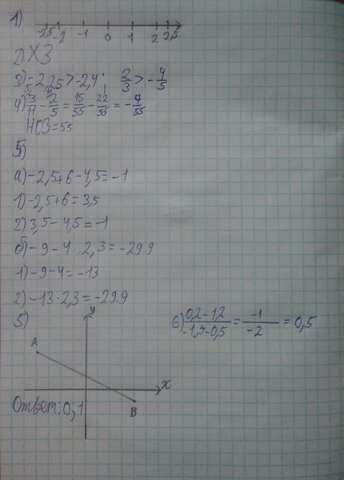 1)
-2,5 -2 -1 0 1 2 2,5
2) X 3
3) -2,25 > -2,4; 2/3 > -4/5
4) 3/11 - 2/5 = 15/55 - 22/55 = -7/55
НОЗ = 55
5)
а) -2,5+6-4,5=-1
1) -2,5+6=3,5
2) 3,5-4,5=-1
б) -9-4·2,3=-29.9
1) -9-4=-13
2) -13·2,3=-29.9
5) y
6) 0,2-1,2/-1,5-0,5 = -1/-2 = 0,5
A
x
Ответ: 0,1
B